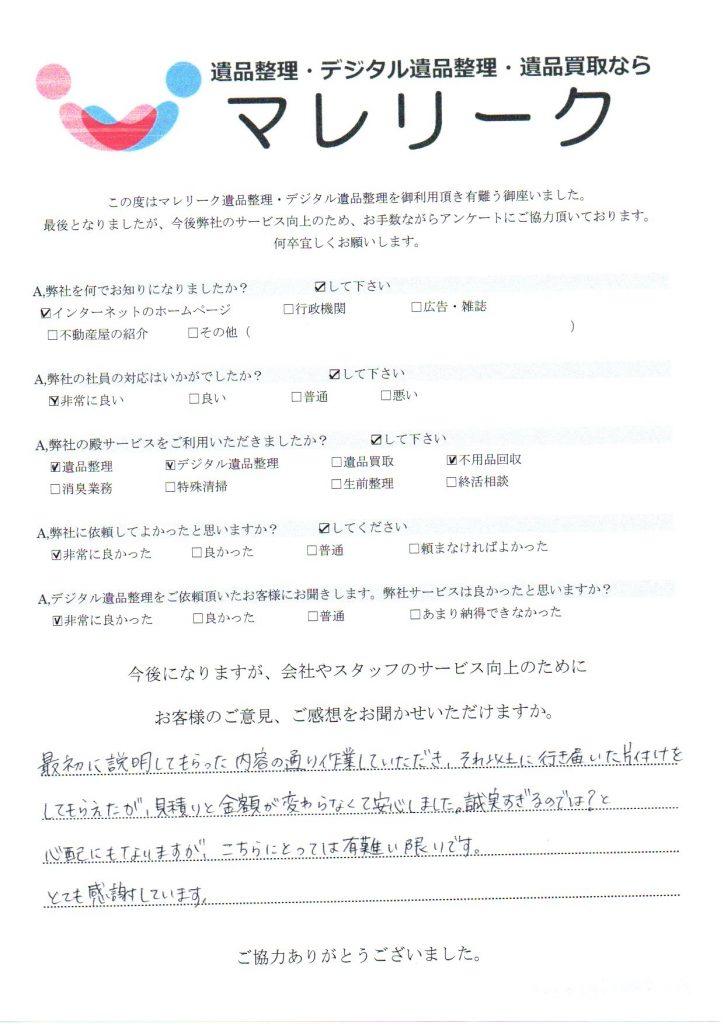 遺品整理・デジタル遺品整理・遺品買取なら
マレリーク
この度はマレリーク遺品整理・デジタル遺品整理を御利用頂き有難う御座いました。
最後となりましたが、今後弊社のサービス向上のため、お手数ながらアンケートにご協力頂いております。
何卒宜しくお願いします。
A,弊社を何でお知りになりましたか？ ☑して下さい
☑インターネットのホームページ □行政機関 □広告・雑誌
□不動産屋の紹介 □その他（ ）
A,弊社の社員の対応はいかがでしたか？ ☑して下さい
☑非常に良い □良い □普通 □悪い
A,弊社の殿サービスをご利用いただきましたか？ ☑して下さい
☑遺品整理 ☑デジタル遺品整理 □遺品買取 ☑不用品回収
□消臭業務 □特殊清掃 □生前整理 □終活相談
A,弊社に依頼してよかったと思いますか？ ☑してください
☑非常に良かった □良かった □普通 □頼まなければよかった
A,デジタル遺品整理をご依頼頂いたお客様にお聞きします。弊社サービスは良かったと思いますか？
☑非常に良かった □良かった □普通 □あまり納得できなかった
今後になりますが、会社やスタッフのサービス向上のために
お客様のご意見、ご感想をお聞かせいただけますか。
最初に説明してもらった内容の通り作業していただき、それ以上に行き届いた片付けを
してもらえたが、見積りと金額が変わらなくて安心しました。誠実すぎるのでは?と
心配にもなりますが、こちらにとっては有難い限りです。
とても感謝しています。
ご協力ありがとうございました。